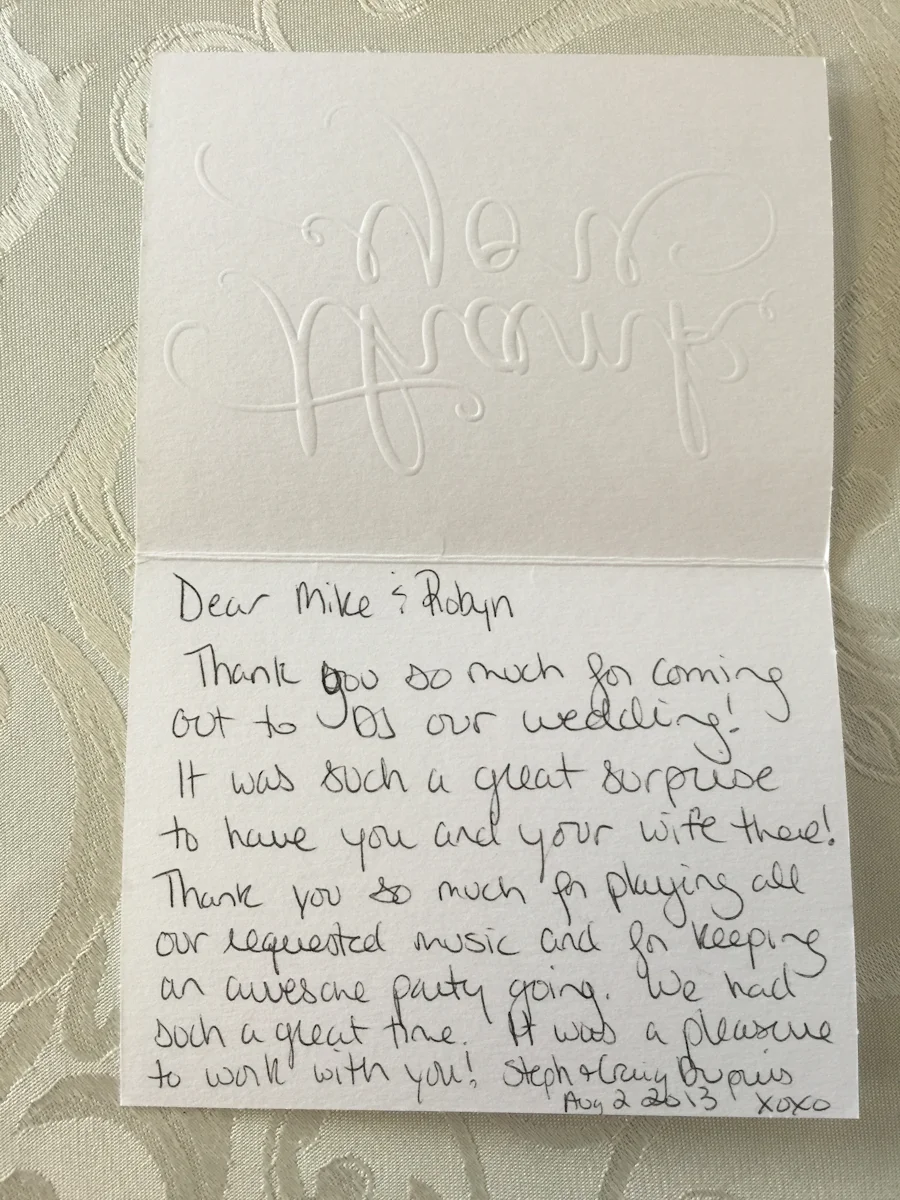 Thank
You
Dear Mike & Robyn
Thank you so much for coming
out to DJ our wedding!
It was such a great surprise
to have you and your wife there!
Thank you so much for playing all
our requested music and for keeping
an awesome party going. We had
such a great time. It was a pleasure
to work with you! Steph & Craig Dupuis
Aug 2 2013 XOXO